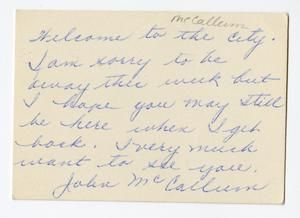 McCallum
Welcome to the city.
I am sorry to be
away this week but
I hope you may still
be here when I get
back. I very much
want to see you.
John McCallum